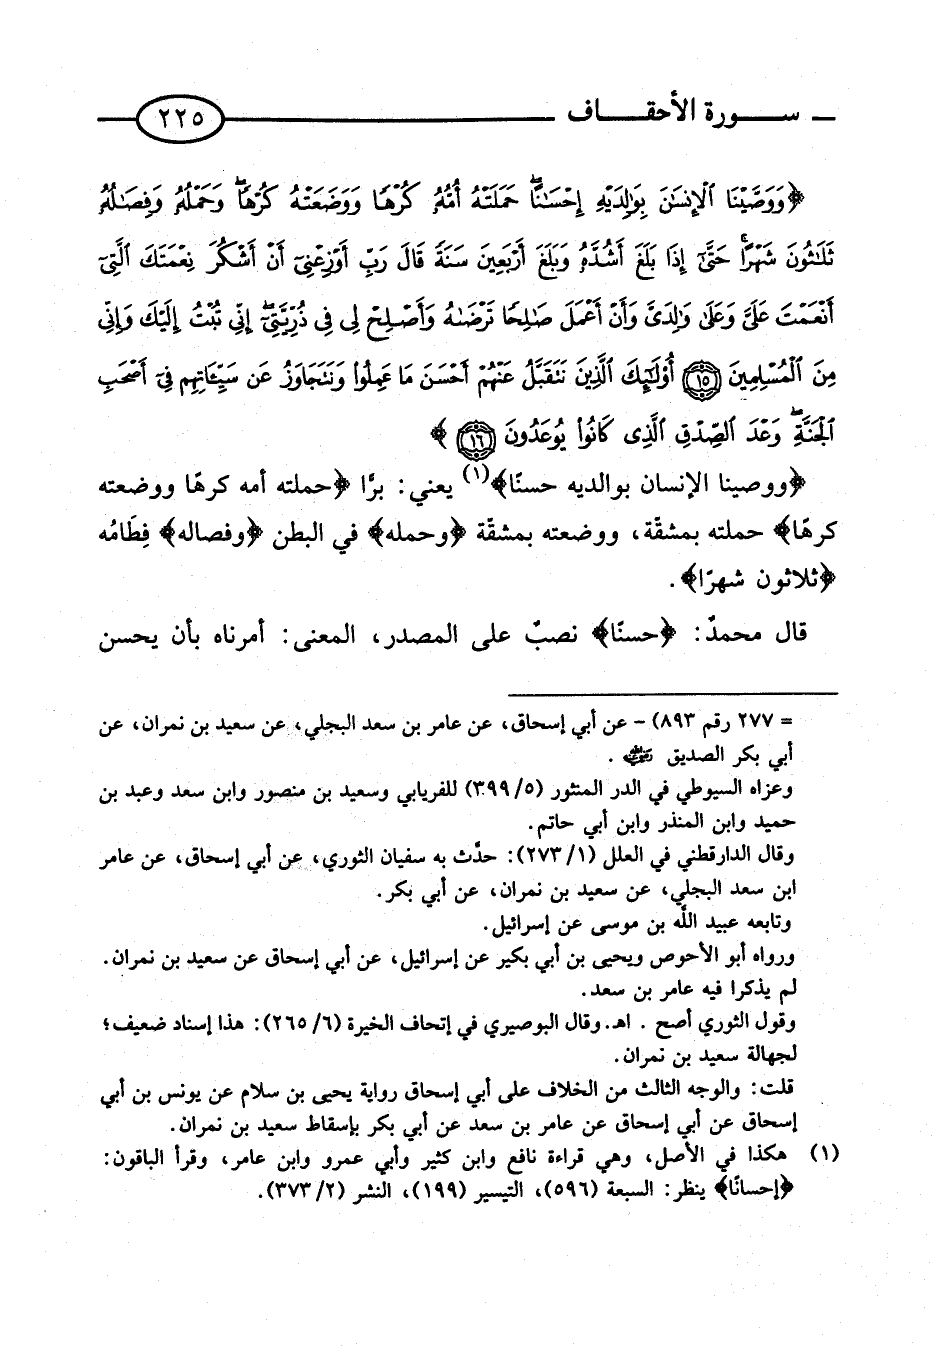 سـورة الأحقـاف ٢٢٥
﴿وَوَصَّيْنَا ٱلْإِنسَٰنَ بِوَٰلِدَيْهِ إِحْسَٰنًا ۖ حَمَلَتْهُ أُمُّهُۥ كُرْهًا وَوَضَعَتْهُ كُرْهًا ۖ وَحَمْلُهُۥ وَفِصَٰلُهُۥ
ثَلَٰثُونَ شَهْرًا ۚ حَتَّىٰٓ إِذَا بَلَغَ أَشُدَّهُۥ وَبَلَغَ أَرْبَعِينَ سَنَةً قَالَ رَبِّ أَوْزِعْنِىٓ أَنْ أَشْكُرَ نِعْمَتَكَ ٱلَّتِىٓ
أَنْعَمْتَ عَلَىَّ وَعَلَىٰ وَٰلِدَىَّ وَأَنْ أَعْمَلَ صَٰلِحًا تَرْضَىٰهُ وَأَصْلِحْ لِى فِى ذُرِّيَّتِىٓ ۖ إِنِّى تُبْتُ إِلَيْكَ وَإِنِّى
مِنَ ٱلْمُسْلِمِينَ ١٥ أُو۟لَٰٓئِكَ ٱلَّذِينَ نَتَقَبَّلُ عَنْهُمْ أَحْسَنَ مَا عَمِلُوا۟ وَنَتَجَاوَزُ عَن سَيِّـَٔاتِهِمْ فِىٓ أَصْحَٰبِ
ٱلْجَنَّةِ ۖ وَعْدَ ٱلصِّدْقِ ٱلَّذِى كَانُوا۟ يُوعَدُونَ ١٦﴾
﴿ووصينا الإنسان بوالديه حسنًا﴾(١) يعني: برًّا ﴿حملته أمه كرهًا ووضعته
كرهًا﴾ حملته بمشقّة، ووضعته بمشقّة ﴿وحمله﴾ في البطن ﴿وفصاله﴾ فِطَامُه
﴿ثلاثون شهرًا﴾.
قال محمدٌ: ﴿حسنًا﴾ نصبٌ على المصدر، المعنى: أمرناه بأن يحسن
= ٢٧٧ رقم ٨٩٣) - عن أبي إسحاق، عن عامر بن سعد البجلي، عن سعيد بن نمران، عن
أبي بكر الصديق رضي الله عنه .
وعزاه السيوطي في الدر المنثور (٥/ ٣٩٩) للفريابي وسعيد بن منصور وابن سعد وعبد بن
حميد وابن المنذر وابن أبي حاتم.
وقال الدارقطني في العلل (١/ ٢٧٣): حدَّث به سفيان الثوري، عن أبي إسحاق، عن عامر
ابن سعد البجلي، عن سعيد بن نمران، عن أبي بكر.
وتابعه عبيد اللَّه بن موسى عن إسرائيل.
ورواه أبو الأحوص ويحيى بن أبي بكير عن إسرائيل، عن أبي إسحاق عن سعيد بن نمران.
لم يذكرا فيه عامر بن سعد.
وقول الثوري أصح . اهـ. وقال البوصيري في إتحاف الخيرة (٦/ ٢٦٥): هذا إسناد ضعيف؛
لجهالة سعيد بن نمران.
قلت: والوجه الثالث من الخلاف على أبي إسحاق رواية يحيى بن سلام عن يونس بن أبي
إسحاق عن أبي إسحاق عن عامر بن سعد عن أبي بكر بإسقاط سعيد بن نمران.
(١) هكذا في الأصل، وهي قراءة نافع وابن كثير وأبي عمرو وابن عامر، وقرأ الباقون:
﴿إحسانًا﴾ ينظر: السبعة (٥٩٦)، التيسير (١٩٩)، النشر (٢/ ٣٧٣).